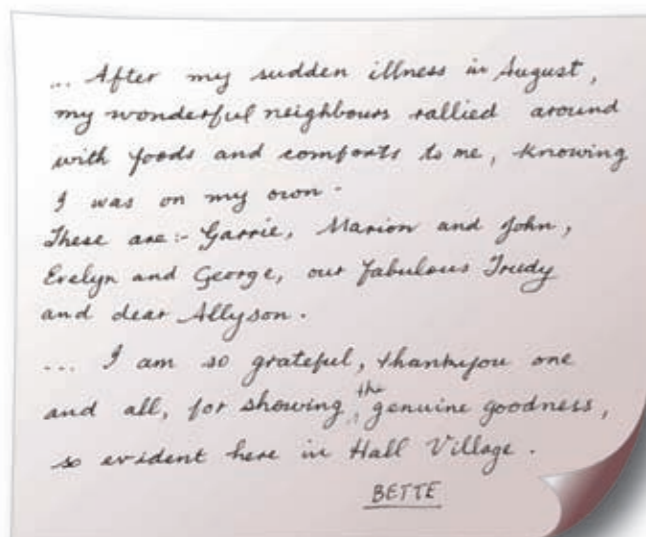 ... After my sudden illness in August,
my wonderful neighbours rallied around
with foods and comforts to me, knowing
I was on my own.
These are:- Garrie, Marion and John,
Evelyn and George, our fabulous Trudy
and dear Allyson.
... I am so grateful, thankyou one
and all, for showing the genuine goodness,
so evident here in Hall Village.
BETTE